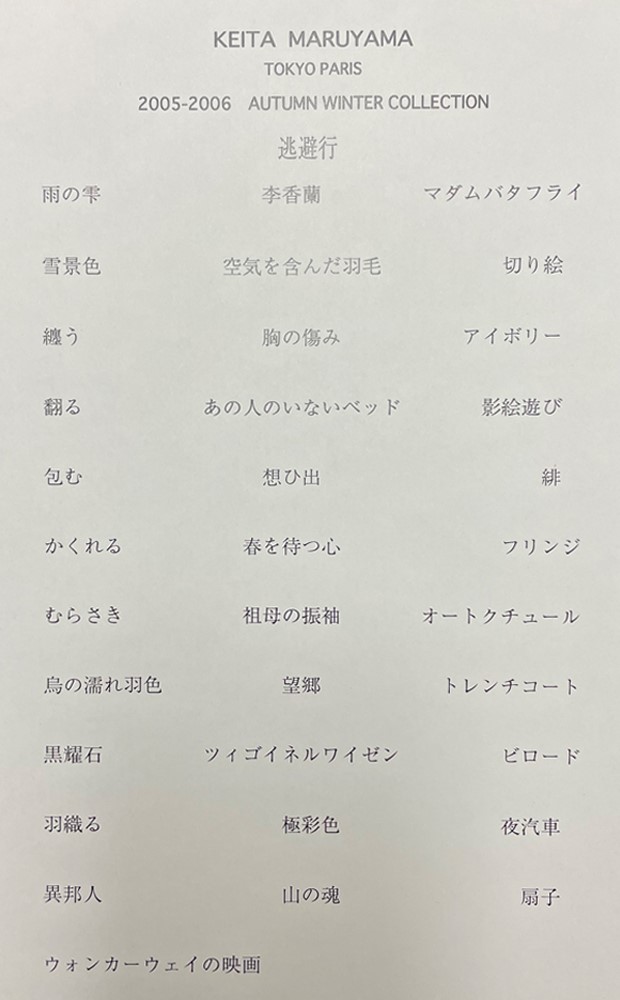 KEITA MARUYAMA
TOKYO PARIS
2005-2006 AUTUMN WINTER COLLECTION
逃避行
雨の雫 李香蘭 マダムバタフライ
雪景色 空気を含んだ羽毛 切り絵
纏う 胸の傷み アイボリー
翻る あの人のいないベッド 影絵遊び
包む 想ひ出 緋
かくれる 春を待つ心 フリンジ
むらさき 祖母の振袖 オートクチュール
烏の濡れ羽色 望郷 トレンチコート
黒耀石 ツィゴイネルワイゼン ビロード
羽織る 極彩色 夜汽車
異邦人 山の魂 扇子
ウォンカーウェイの映画